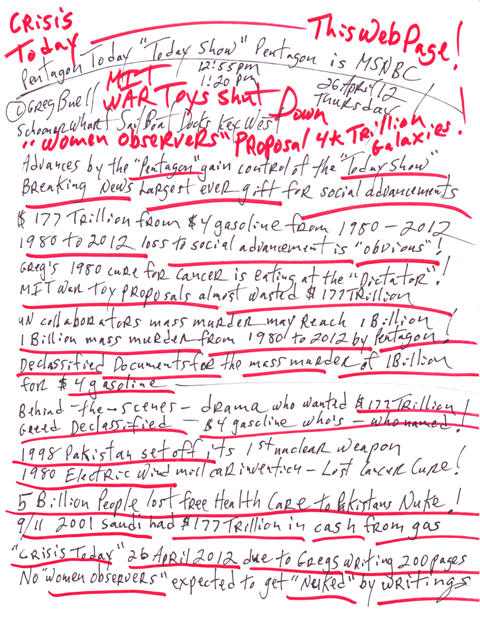 CRISIS
Today
This Web Page!
Pentagon Today "Today Show" Pentagon is MSNBC
MIT
12:55pm
1:20pm
26 April 12
Thursday
© Greg Buell
WAR Toys Shut Down
Schooner Wharf Sail Boat Docks Key West
"Women Observers" Proposal 4 * Trillion Galaxies!
Advances by the "Pentagon" gain control of the "Today Show"
Breaking News Largest ever gift for social advancements
$177 Trillion from $4 gasoline from 1980 - 2012
1980 to 2012 loss to social advancement is "obvious"!
Greg's 1980 cure for cancer is eating at the "Dictator"!
MIT War Toy Proposals almost wasted $177 Trillion
UN collaborators mass murder may reach 1 Billion!
1 Billion mass murder from 1980 to 2012 by Pentagon!
Declassified Documents for the mass murder of 1 Billion
for $4 gasoline
Behind-the-scenes - drama who wanted $177 Trillion!
Greed Declassified - $4 gasoline who's - who named!
1998 Pakistan set off its 1st nuclear weapon
1980 Electric Wind mill car invention - Lost Cancer Cure!
5 Billion People lost free Health Care to Pakistans Nuke!
9/11 2001 Saudi had $177 Trillion in cash from gas
"Crisis Today" 26 April 2012 due to Gregs writing 200 pages
No "Women Observers" expected to get "Nuked" by writings